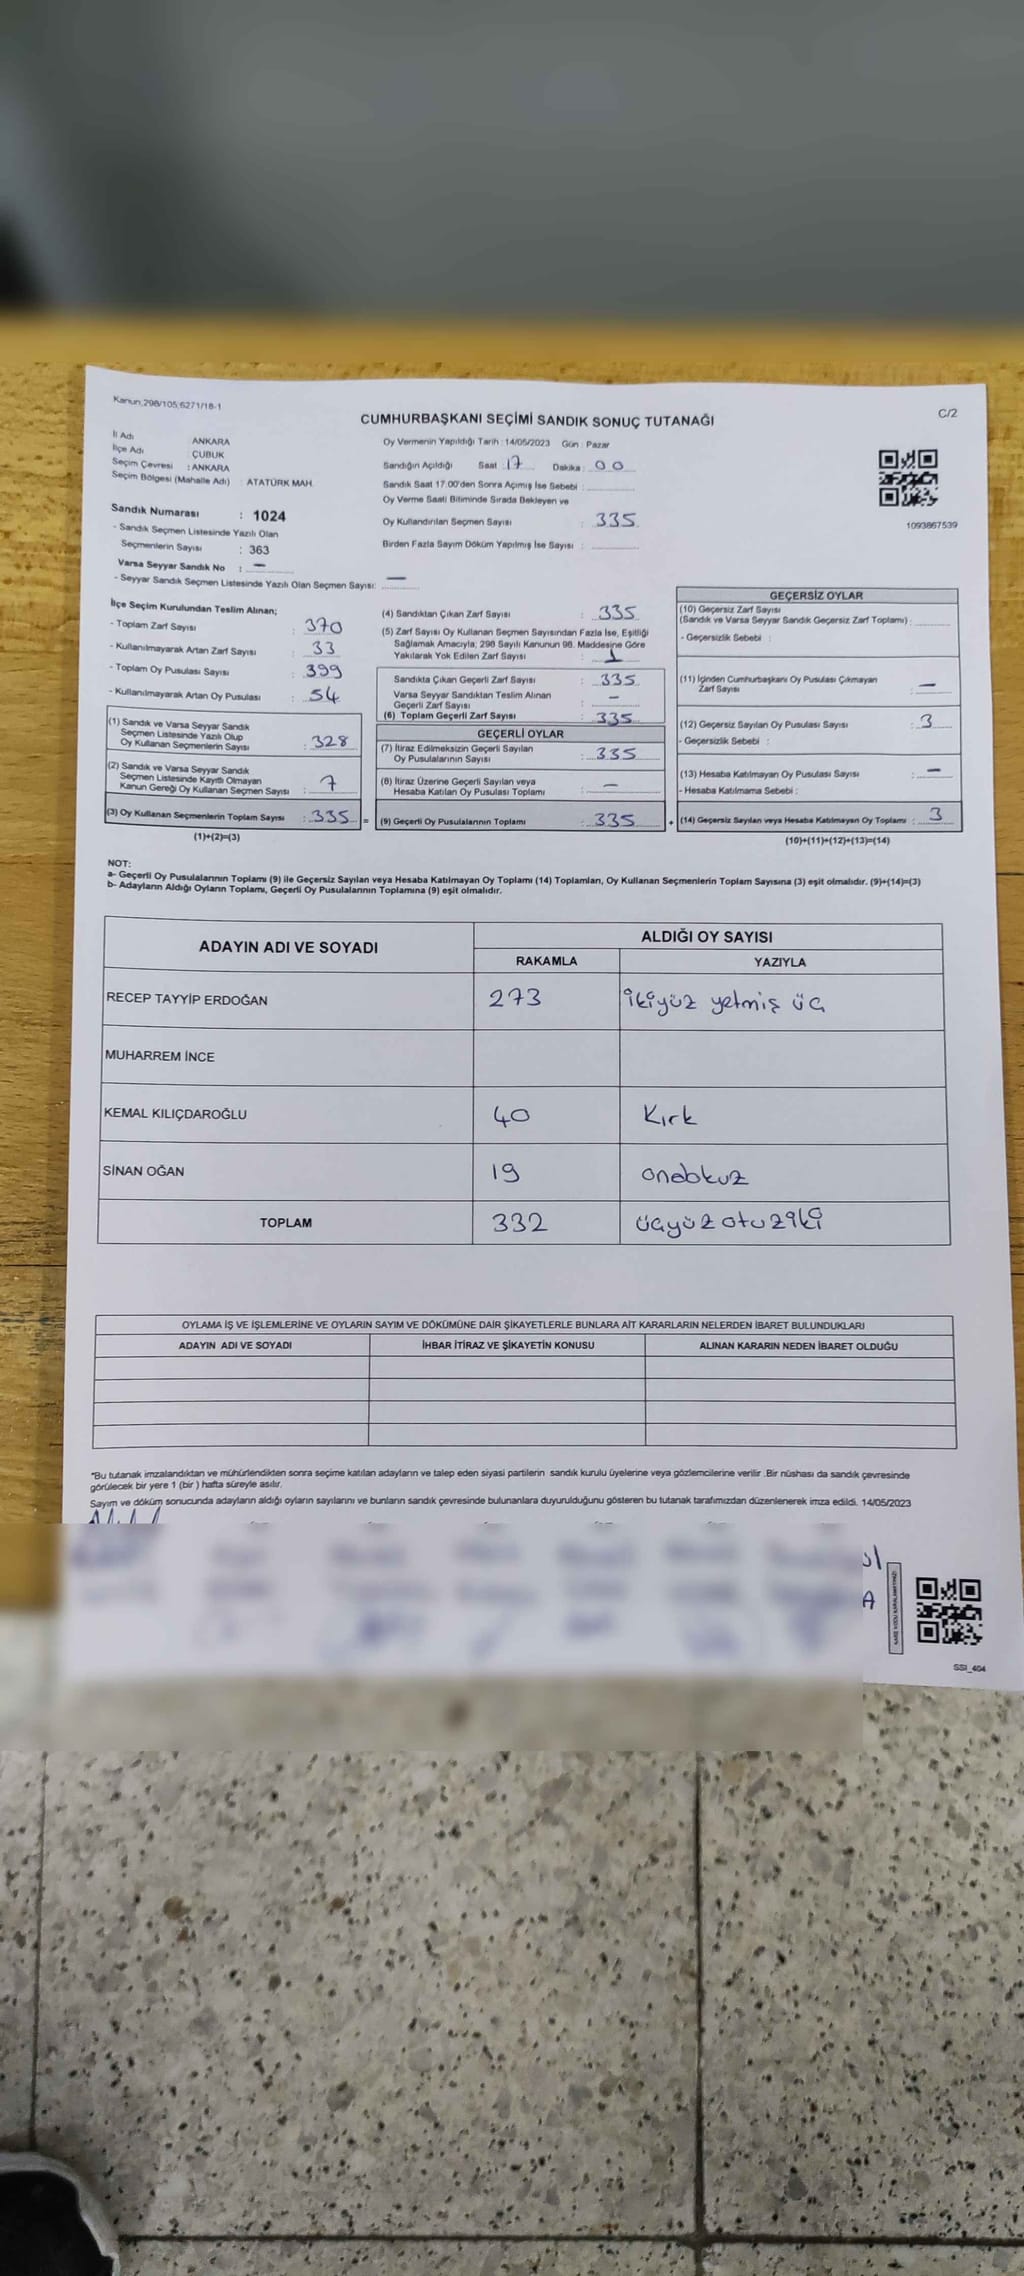 Kanun:298/105;6271/18-1
C/2
CUMHURBAŞKANI SEÇİMİ SANDIK SONUÇ TUTANAĞI
İl Adı ANKARA
İlçe Adı : ÇUBUK
Seçim Çevresi : ANKARA
Seçim Bölgesi (Mahalle Adı) : ATATÜRK MAH.
Sandık Numarası : 1024
- Sandık Seçmen Listesinde Yazılı Olan
Seçmenlerin Sayısı : 363
Varsa Seyyar Sandık No : —
- Seyyar Sandık Seçmen Listesinde Yazılı Olan Seçmen Sayısı: —
Oy Vermenin Yapıldığı Tarih : 14/05/2023 Gün : Pazar
Sandığın Açıldığı Saat : 17 Dakika : 00
Sandık Saat 17:00'den Sonra Açılmış İse Sebebi :
Oy Verme Saati Bitiminde Sırada Bekleyen ve
Oy Kullandırılan Seçmen Sayısı : 335
Birden Fazla Sayım Döküm Yapılmış İse Sayısı :
1093867539
İlçe Seçim Kurulundan Teslim Alınan;
- Toplam Zarf Sayısı : 370
- Kullanılmayarak Artan Zarf Sayısı : 33
- Toplam Oy Pusulası Sayısı : 399
- Kullanılmayarak Artan Oy Pusulası : 54
(1) Sandık ve Varsa Seyyar Sandık
Seçmen Listesinde Yazılı Olup
Oy Kullanan Seçmenlerin Sayısı : 328
(2) Sandık ve Varsa Seyyar Sandık
Seçmen Listesinde Kayıtlı Olmayan
Kanun Gereği Oy Kullanan Seçmen Sayısı : 7
(3) Oy Kullanan Seçmenlerin Toplam Sayısı : 335 =
(1)+(2)=(3)
(4) Sandıktan Çıkan Zarf Sayısı : 335
(5) Zarf Sayısı Oy Kullanan Seçmen Sayısından Fazla İse, Eşitliği
Sağlamak Amacıyla; 298 Sayılı Kanunun 98. Maddesine Göre
Yakılarak Yok Edilen Zarf Sayısı : 1
Sandıkta Çıkan Geçerli Zarf Sayısı : 335
Varsa Seyyar Sandıktan Teslim Alınan
Geçerli Zarf Sayısı : —
(6) Toplam Geçerli Zarf Sayısı : 335
GEÇERLİ OYLAR
(7) İtiraz Edilmeksizin Geçerli Sayılan
Oy Pusulalarının Sayısı : 335
(8) İtiraz Üzerine Geçerli Sayılan veya
Hesaba Katılan Oy Pusulası Toplamı : —
(9) Geçerli Oy Pusulalarının Toplamı : 335 +
GEÇERSİZ OYLAR
(10) Geçersiz Zarf Sayısı
(Sandık ve Varsa Seyyar Sandık Geçersiz Zarf Toplamı) :
- Geçersizlik Sebebi :
(11) İçinden Cumhurbaşkanı Oy Pusulası Çıkmayan
Zarf Sayısı : —
(12) Geçersiz Sayılan Oy Pusulası Sayısı : 3
- Geçersizlik Sebebi :
(13) Hesaba Katılmayan Oy Pusulası Sayısı : —
- Hesaba Katılmama Sebebi :
(14) Geçersiz Sayılan veya Hesaba Katılmayan Oy Toplamı : 3
(10)+(11)+(12)+(13)=(14)
NOT:
a- Geçerli Oy Pusulalarının Toplamı (9) ile Geçersiz Sayılan veya Hesaba Katılmayan Oy Toplamı (14) Toplamları, Oy Kullanan Seçmenlerin Toplam Sayısına (3) eşit olmalıdır. (9)+(14)=(3)
b- Adayların Aldığı Oyların Toplamı, Geçerli Oy Pusulalarının Toplamına (9) eşit olmalıdır.
ADAYIN ADI VE SOYADI ALDIĞI OY SAYISI
RAKAMLA YAZIYLA
RECEP TAYYİP ERDOĞAN 273 ikiyüz yetmiş üç
MUHARREM İNCE
KEMAL KILIÇDAROĞLU 40 Kırk
SİNAN OĞAN 19 ondokuz
TOPLAM 332 üçyüz otuz iki
OYLAMA İŞ VE İŞLEMLERİNE VE OYLARIN SAYIM VE DÖKÜMÜNE DAİR ŞİKAYETLERLE BUNLARA AİT KARARLARIN NELERDEN İBARET BULUNDUKLARI
ADAYIN ADI VE SOYADI İHBAR İTİRAZ VE ŞİKAYETİN KONUSU ALINAN KARARIN NEDEN İBARET OLDUĞU
*Bu tutanak imzalandıktan ve mühürlendikten sonra seçime katılan adayların ve talep eden siyasi partilerin sandık kurulu üyelerine veya gözlemcilerine verilir .Bir nüshası da sandık çevresinde
görülecek bir yere 1 (bir ) hafta süreyle asılır.
Sayım ve döküm sonucunda adayların aldığı oyların sayılarını ve bunların sandık çevresinde bulunanlara duyurulduğunu gösteren bu tutanak tarafımızdan düzenlenerek imza edildi. 14/05/2023
SSI_404